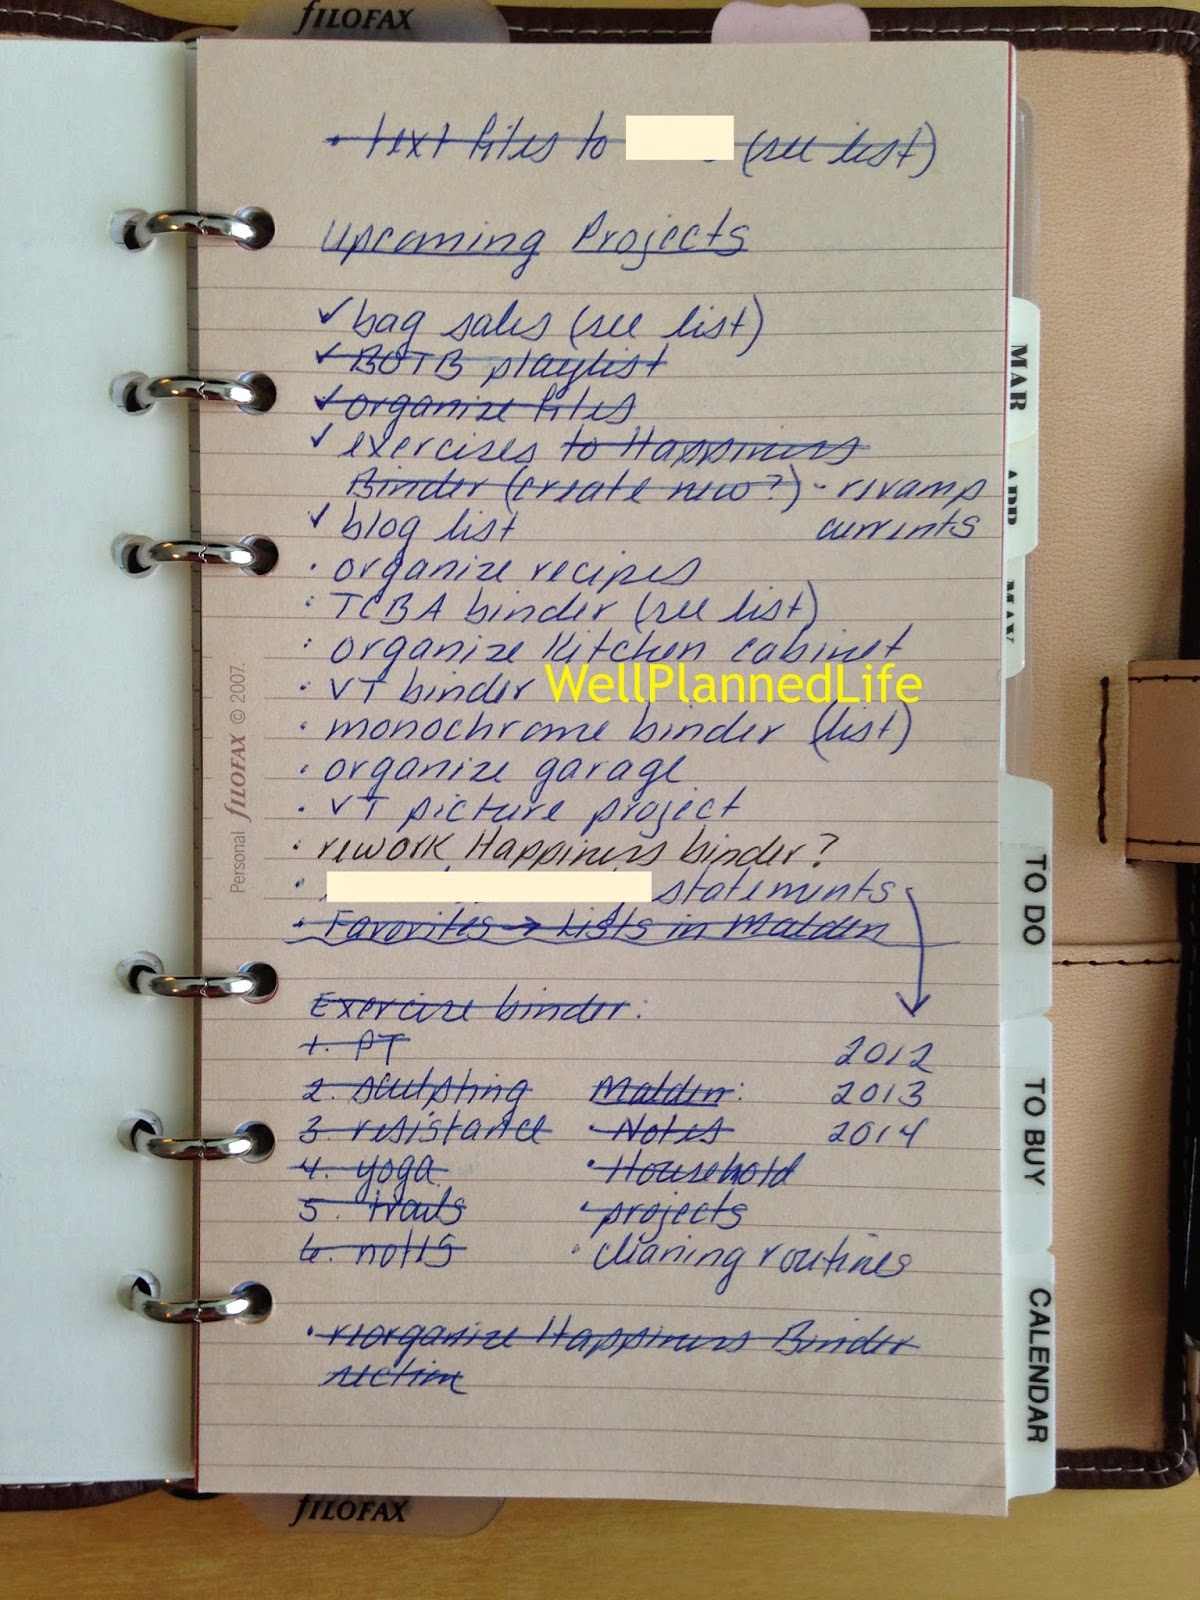 fILOFAX
• text files to (see list)
Upcoming Projects
✓ bag sales (see list)
✓ BOTB playlist
✓ organize files
✓ exercises to Happiness
Binder (create new?) - revamp
currents
✓ blog list
• organize recipes
• TCBA binder (see list)
• organize kitchen cabinet
• VT binder
WellPlannedLife
• monochrome binder (list)
• organize garage
• VT picture project
• rework Happiness binder?
• statements
• Favorites → Lists in Malden
Exercise binder:
1. PT
2. sculpting
3. resistance
4. yoga
5. trails
6. notes
2012
2013
2014
Malden:
• Notes
• Household
• projects
• cleaning routines
• reorganize Happiness Binder
section
Personal fILOFAX © 2007.
MAR
APR
MAY
TO DO
TO BUY
CALENDAR
fILOFAX